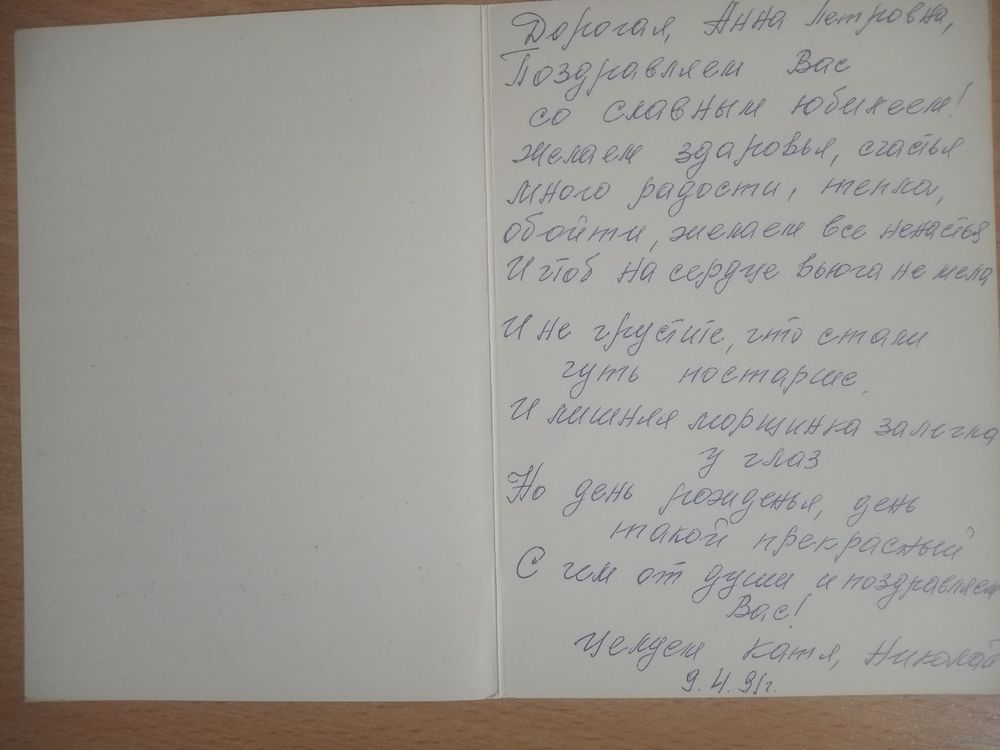 Дорогая, Анна Петровна,
Поздравляем Вас
со славным юбилеем!
Желаем здоровья, счастья
много радости, тепла,
обойти, желаем все ненастья
И чтоб на сердце вьюга не мела
И не грустите, что стали
чуть постарше,
И лишняя морщинка залегла
у глаз
Но день рожденья, день
такой прекрасный
С чем от души и поздравляем
Вас!
Целуем Катя, Николай
9.4.91г.